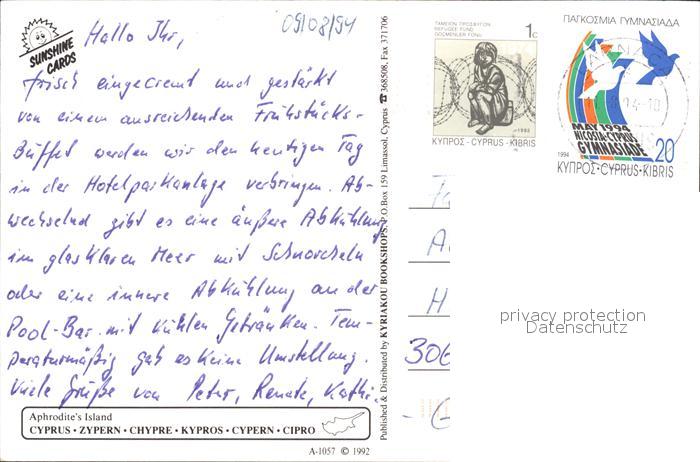 SUNSHINE
CARDS
09/08/94
Hallo Ihr,
frisch eingecremt und gestärkt
von einem ausreichenden Frühstücks-
Büffet werden wir den heutigen Tag
in der Hotelparkanlage verbringen. Ab-
wechselnd gibt es eine äußere Abkühlung
im glasklaren Meer mit Schnorcheln
oder eine innere Abkühlung an der
Pool-Bar mit kühlen Getränken. Tem-
peraturmäßig gab es keine Umstellung.
Viele Grüße von Peter, Renate, Kathi.
Aphrodite's Island
CYPRUS · ZYPERN · CHYPRE · KYPROS · CYPERN · CIPRO
A-1057 © 1992
Published & Distributed by KYRIAKOU BOOKSHOPS, P.O.Box 159 Limassol, Cyprus ☎ 368508, Fax 371706
ΤΑΜΕΙΟΝ ΠΡΟΣΦΥΓΩΝ
REFUGEE FUND
GÖÇMENLER FONU
1c
1992
ΚΥΠΡΟΣ · CYPRUS · KIBRIS
ΠΑΓΚΟΣΜΙΑ ΓΥΜΝΑΣΙΑΔΑ
MAY 1994
NICOSIA·CYPRUS
GYMNASIADE
20
1994
ΚΥΠΡΟΣ · CYPRUS · KIBRIS
306
privacy protection
Datenschutz